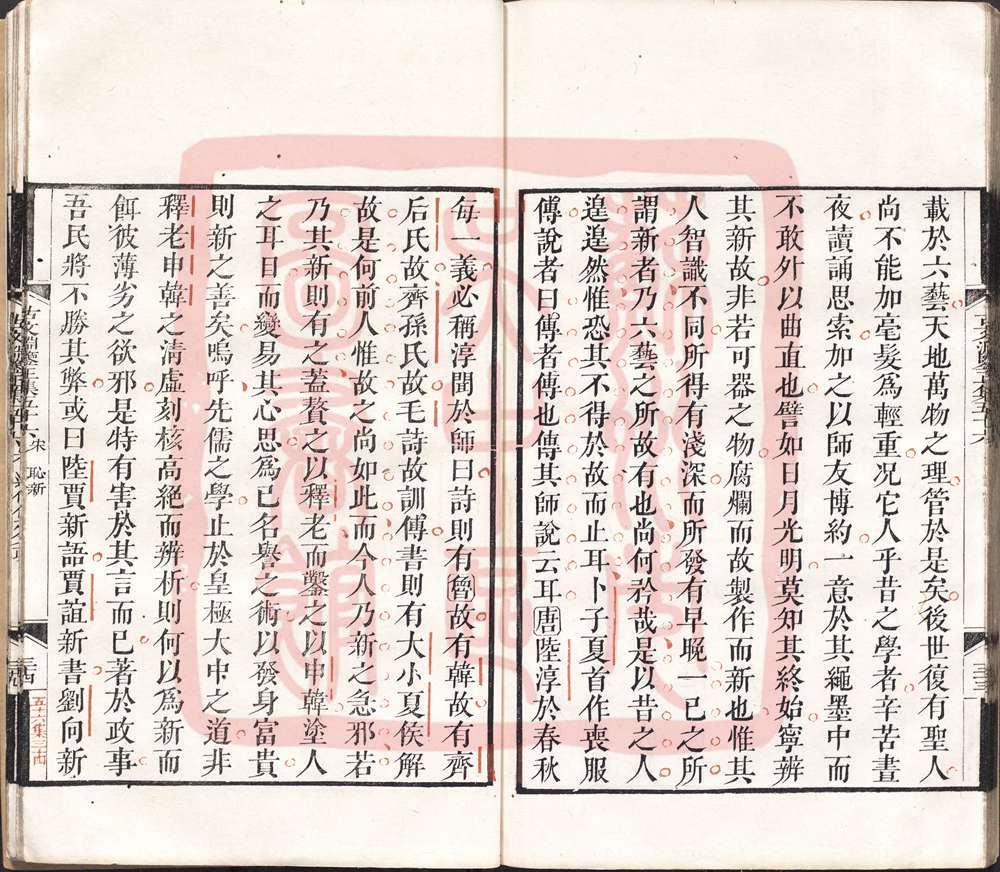 載於六藝天地萬物之理管於是矣後世復有聖人
尚不能加毫髮爲輕重況它人乎昔之學者辛苦晝
夜讀誦思索加之以師友博約一意於其繩墨中而
不敢外以曲直也譬如日月光明莫知其終始寧辨
其新故非若可器之物腐爛而故製作而新也惟其
人智識不同所得有淺深而所發有早晚一已之所
謂新者乃六藝之所故有也尚何矜哉是以昔之人
遑遑然惟恐其不得於故而止耳卜子夏首作喪服
傳說者曰傳者傳也傳其師說云耳唐陸淳於春秋
每一義必稱淳聞於師曰詩則有魯故有韓故有齊
后氏故齊孫氏故毛詩故訓傳書則有大小夏侯解
故是何前人惟故之尚如此而今人乃新之急邪若
乃其新則有之蓋贅之以釋老而鑿之以申韓塗人
之耳目而變易其心思爲已名譽之術以發身富貴
則新之善矣嗚呼先儒之學止於皇極大中之道非
釋老申韓之清虛刻核高絕而辨析則何以爲新而
餌彼薄劣之欲邪是特有害於其言而已著於政事
吾民將不勝其弊或曰陸賈新語賈誼新書劉向新
宋 恥新
五十六集三西